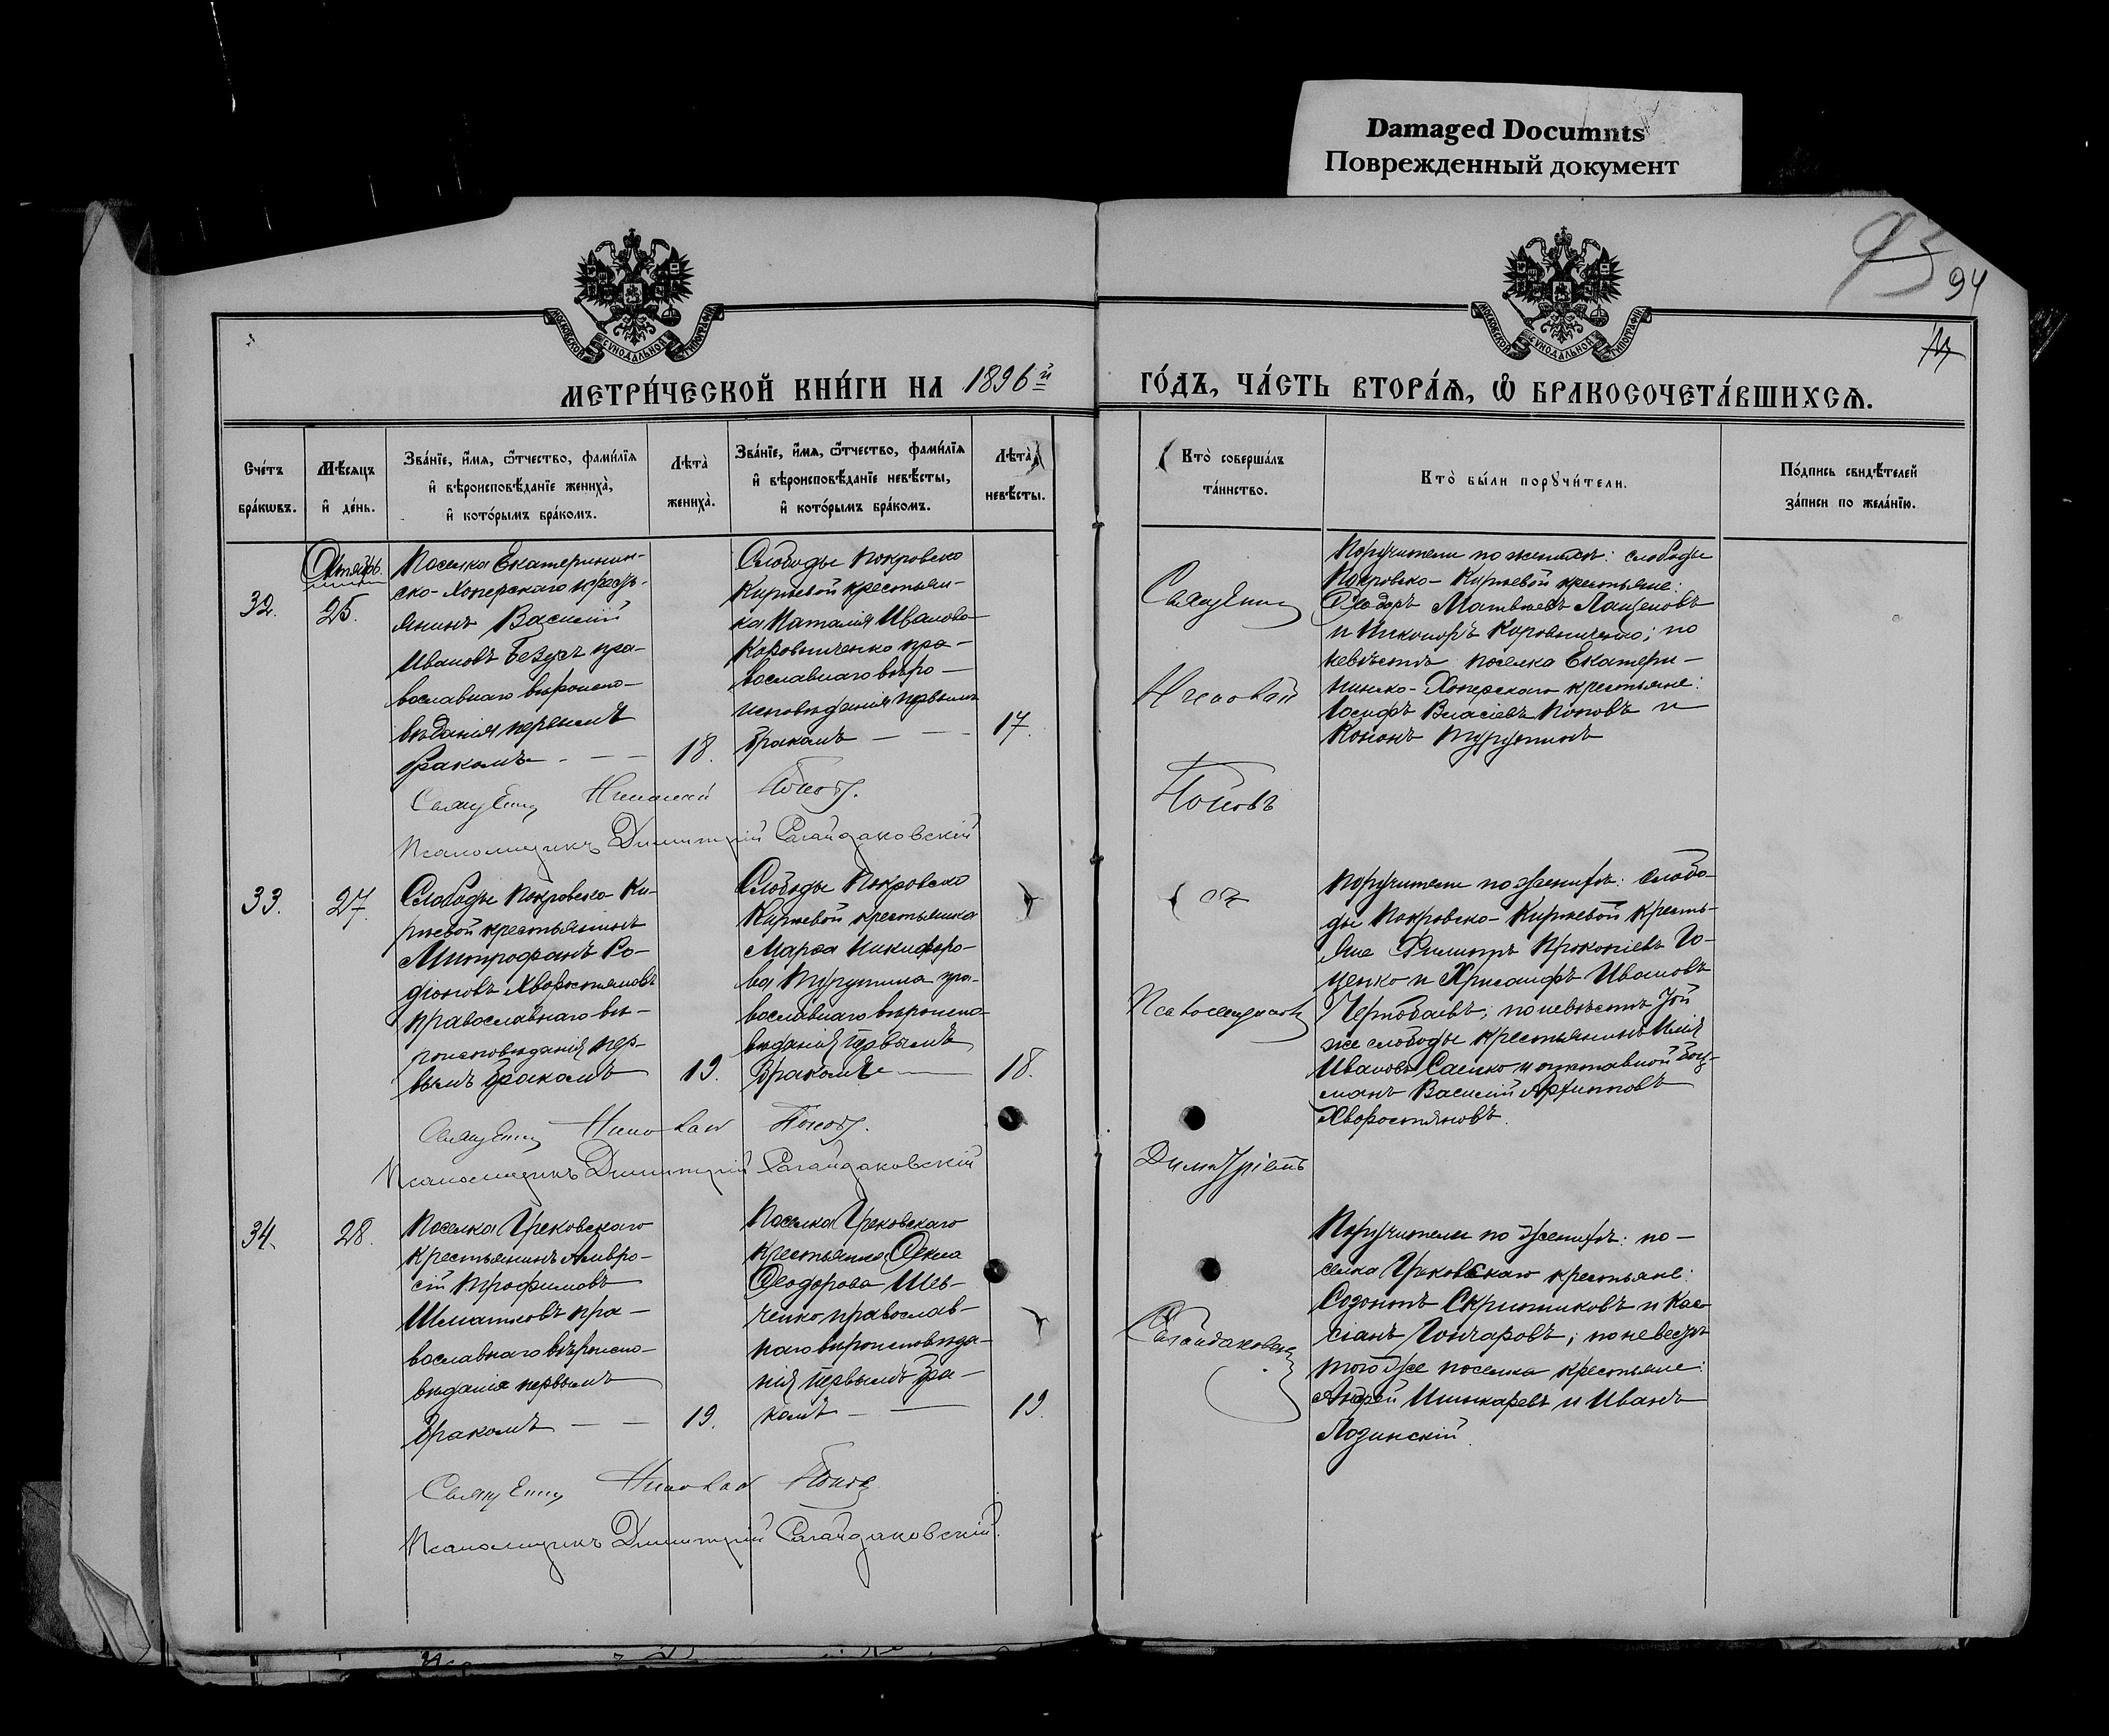 Damaged Documnts
Поврежденный документ
94
МОСКОВСКОЙ СУНОДАЛЬНОЙ ТИПОГРАФІИ
МОСКОВСКОЙ СУНОДАЛЬНОЙ ТИПОГРАФІИ
МЕТРИ́ЧЕСКОЙ КНИ́ГИ НА 1896й
ГО́ДЪ, ЧА́СТЬ ВТОРА́Ѧ, Ѽ БРАКОСОЧЕТА́ВШИХСѦ.
Сче́тъ бра́кѡвъ.
Мѣ́сяцъ и҆ де́нь.
Зва́нїе, и҆́мя, ѻ҆́тчество, фами́лїя
и҆ вѣроисповѣ́данїе жениха̀,
и҆ кото́рымъ бра́комъ.
Лѣта̀ жениха̀.
Зва́нїе, и҆́мя, ѻ҆́тчество, фами́лїя
и҆ вѣроисповѣ́данїе невѣ́сты,
и҆ кото́рымъ бра́комъ.
Лѣта̀ невѣ́сты.
Кто̀ соверша́лъ
та́инство.
Кто̀ бы́ли порꙋчи́тели.
По́дпись свидѣ́телей
за́писи по жела́нїю.
32.
Октябрь.
25.
Поселка Екатеринин-
ско-Хоперскаго крестъ-
янинъ Василій
Ивановъ Безусъ пра-
вославнаго вѣроиспо-
вѣданія первымъ
бракомъ - — —
18.
Слободы Покровско
Киреевой крестьян-
ка Наталія Иванова
Коровниченко пра-
вославнаго вѣро-
исповѣданія первымъ
бракомъ — —
17.
Священникъ
Николай
Поповъ
Поручители по женихѣ: слободы
Покровско-Киреевой крестьяне:
Ѳеодоръ Матвѣевъ Лащеновъ
и Никоноръ Коровниченко; по
невѣстѣ: поселка Екатери-
нинско-Хоперскаго крестьяне:
Іосифъ Власіевъ Поповъ и
Кононъ Турутинъ
Священникъ Николай Поповъ.
Псаломщикъ Димитрій Сагайдаковскій
33.
27.
Слободы Покровско-Ки-
реевой крестьянинъ
Митрофанъ Ро-
діоновъ Хворостяновъ
православнаго вѣ-
роисповѣданія пер-
вымъ бракомъ
19.
Слободы Покровско
Киреевой крестьянка
Марѳа Никифоро-
ва Турутина пра-
вославнаго вѣроиспо-
вѣданія первымъ
бракомъ —
18.
съ
Псаломщикомъ
Димитріемъ
Поручители по женихѣ: слобо-
ды Покровско-Киреевой кресть-
яне Филиппъ Прокопіевъ Го-
ценко и Хрисанфъ Ивановъ
Чертобаевъ; по невѣстѣ той
же слободы крестьянинъ Илія
Ивановъ Сашко и отставной боц-
манъ Василій Архиповъ
Хворостяновъ.
Священникъ Николай Поповъ.
Псаломщикъ Димитрій Сагайдаковскій
34.
28.
Поселка Грековскаго
крестьянинъ Амвро-
сій Трофимовъ
Шматковъ пра-
вославнаго вѣроиспо-
вѣданія первымъ
бракомъ — —
19.
Поселка Грековскаго
крестьянка Ѳекла
Ѳеодорова Шев-
ченко православ-
наго вѣроисповѣда-
нія первымъ бра-
комъ - —
19.
Поручители по женихѣ: по-
селка Грековскаго крестьяне:
Созонтъ Скрипниковъ и Кас-
сіанъ Гончаровъ; по невѣстѣ
того же поселка крестьяне:
Андрей Шинкаревъ и Иванъ
Лозинскій.
Священникъ Николай Поповъ
Псаломщикъ Димитрій Сагайдаковскій.